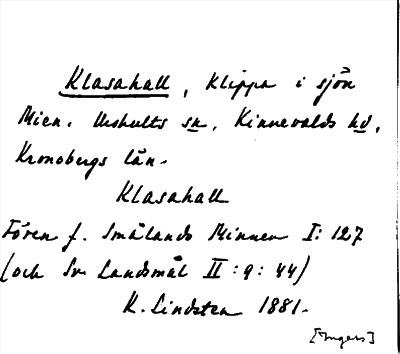 Klasahall, klippa i sjön
Mien. Urshults sn, Kinnevalds hd,
Kronobergs län.
Klasahall
Fören f. Smålands Minnen I: 127
(och Sv. Landsmål II: 9: 44)
K. Lindsten 1881.